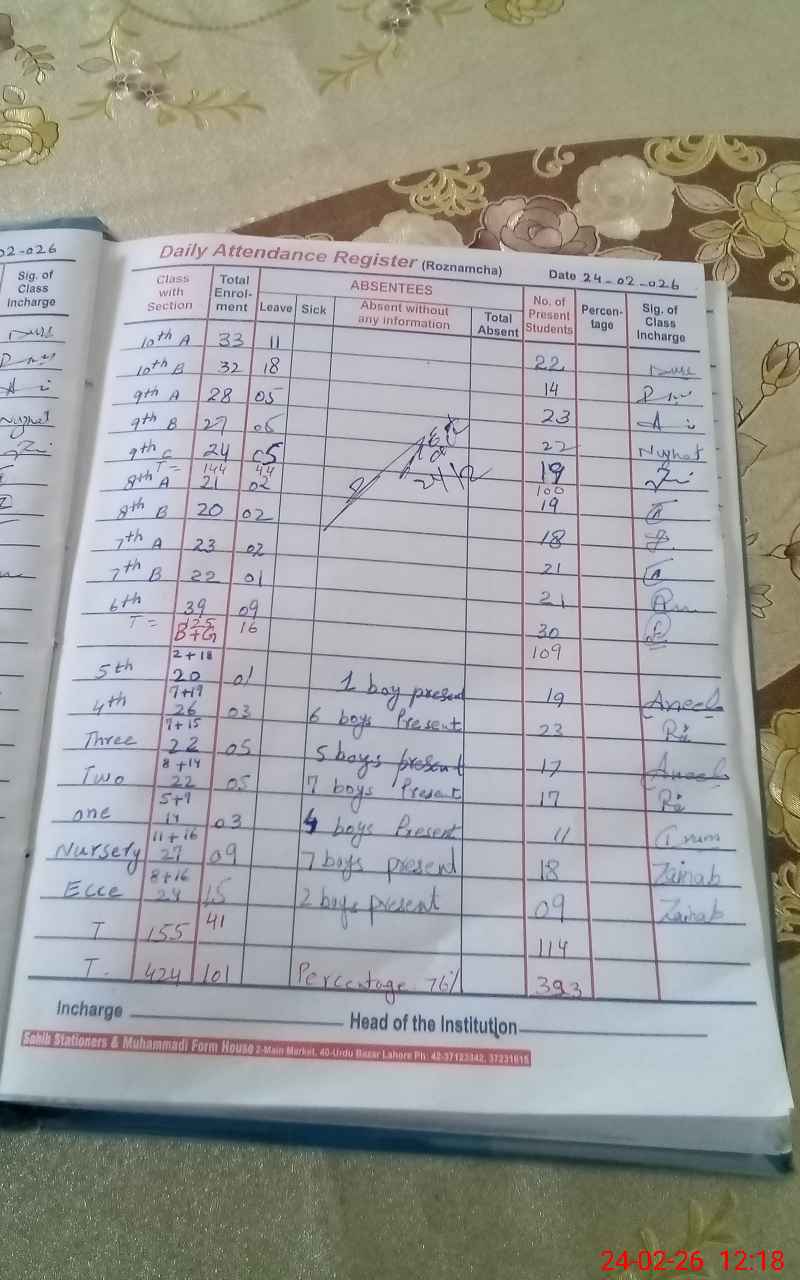 02-026
Sig. of
Class
Incharge
Nuzhat
Daily Attendance Register (Roznamcha) Date 24-02-026
Class with Section Total Enrolment ABSENTEES No. of Present Students Percentage Sig. of Class Incharge
Leave Sick Absent without any information Total Absent
10th A 33 11 22
10th B 32 18 14
9th A 28 05 23
9th B 27 05 22 Nuzhat
9th C 24 05 19
T= 144 44 100
8th A 21 02 19
8th B 20 02 18
7th A 23 02 21
7th B 22 01 21
6th 39 09 30
T= 125 16 109
B+G
2+18
5th 20 01 1 boy present 19 Aneela
7+19
4th 26 03 6 boys Present 23
7+15
Three 22 05 5 boys present 17 Aneela
8+14
Two 22 05 7 boys Present 17
5+9
one 14 03 4 boys Present 11
11+16
Nursery 27 09 7 boys present 18 Zainab
8+16
Ecce 24 15 2 boys present 09 Zainab
T 155 41 114
T. 424 101 Percentage 76% 323
Incharge Head of the Institution
Sahib Stationers & Muhammadi Form House 2-Main Market, 40-Urdu Bazar Lahore Ph: 42-37123342, 37231615
24-02-26 12:18